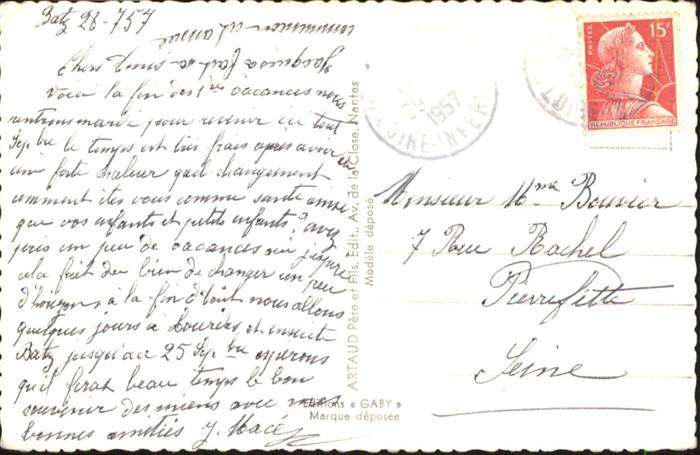 Batz 28-7 57
Chers Amis
Jacqui a fait sa
communion cet année
voici la fin des 1ères vacances nous
rentrons mardi pour revenir en tout
Sepbre le temps est très frais après avoir eu
une forte chaleur quel changement
comment êtes vous comme santé ainsi
que vos enfants et petits enfants, avez
pris un peu de vacances oui j'espère
cela fait du bien de changer un peu
d'horizon, à la fin d'août nous allons
quelques jours à Louviers et ensuite
Batz jusqu'au 25 Sepbre espérons
qu'il ferat beau temps le bon
souvenir des miens avec mes
bonnes amitiés J. Macé
ARTAUD Père et Fils, Edit., Av. de la Close, Nantes
Modèle déposé
Editions « GABY »
Marque déposée
29
1957
LOIRE-INFERE
POSTES
15F
REPUBLIQUE FRANÇAISE
Monsieur Mme Bouvier
7 Rue Rachel
Pierrefitte
Seine